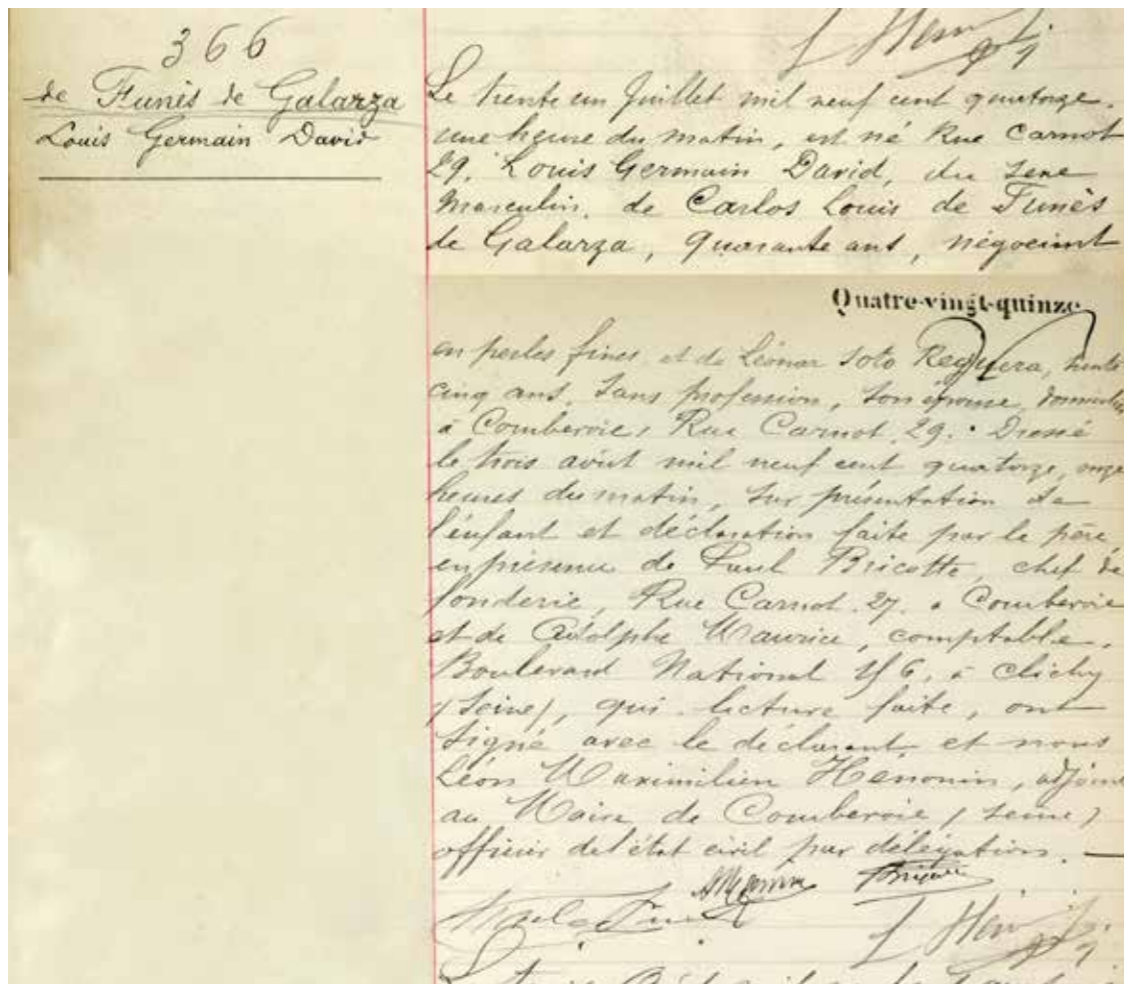 366
de Funès de Galarza
Louis Germain David
Le trente un Juillet mil neuf cent quatorze.
une heure du matin, est né Rue Carnot
29, Louis Germain David, du sexe
Masculin, de Carlos Louis de Funès
de Galarza, Quarante ans, négociant
Quatre-vingt-quinze
en perles fines et de Léonor Soto Reguera, trente
cinq ans, sans profession, son épouse, domiciliés
à Courbevoie, Rue Carnot, 29. Dressé
le trois août mil neuf cent quatorze, onze
heures du matin, sur présentation de
l'enfant et déclaration faite par le père
en présence de Paul Bricotte, chef de
fonderie, Rue Carnot. 27. à Courbevoie
et de Adolphe Maurice, comptable,
Boulevard National à Clichy
(Seine), qui lecture faite, ont
signé avec le déclarant et nous
Léon Maximilien Hénonin, adjoint
au Maire de Courbevoie (Seine)
officier de l'état civil par délégation.